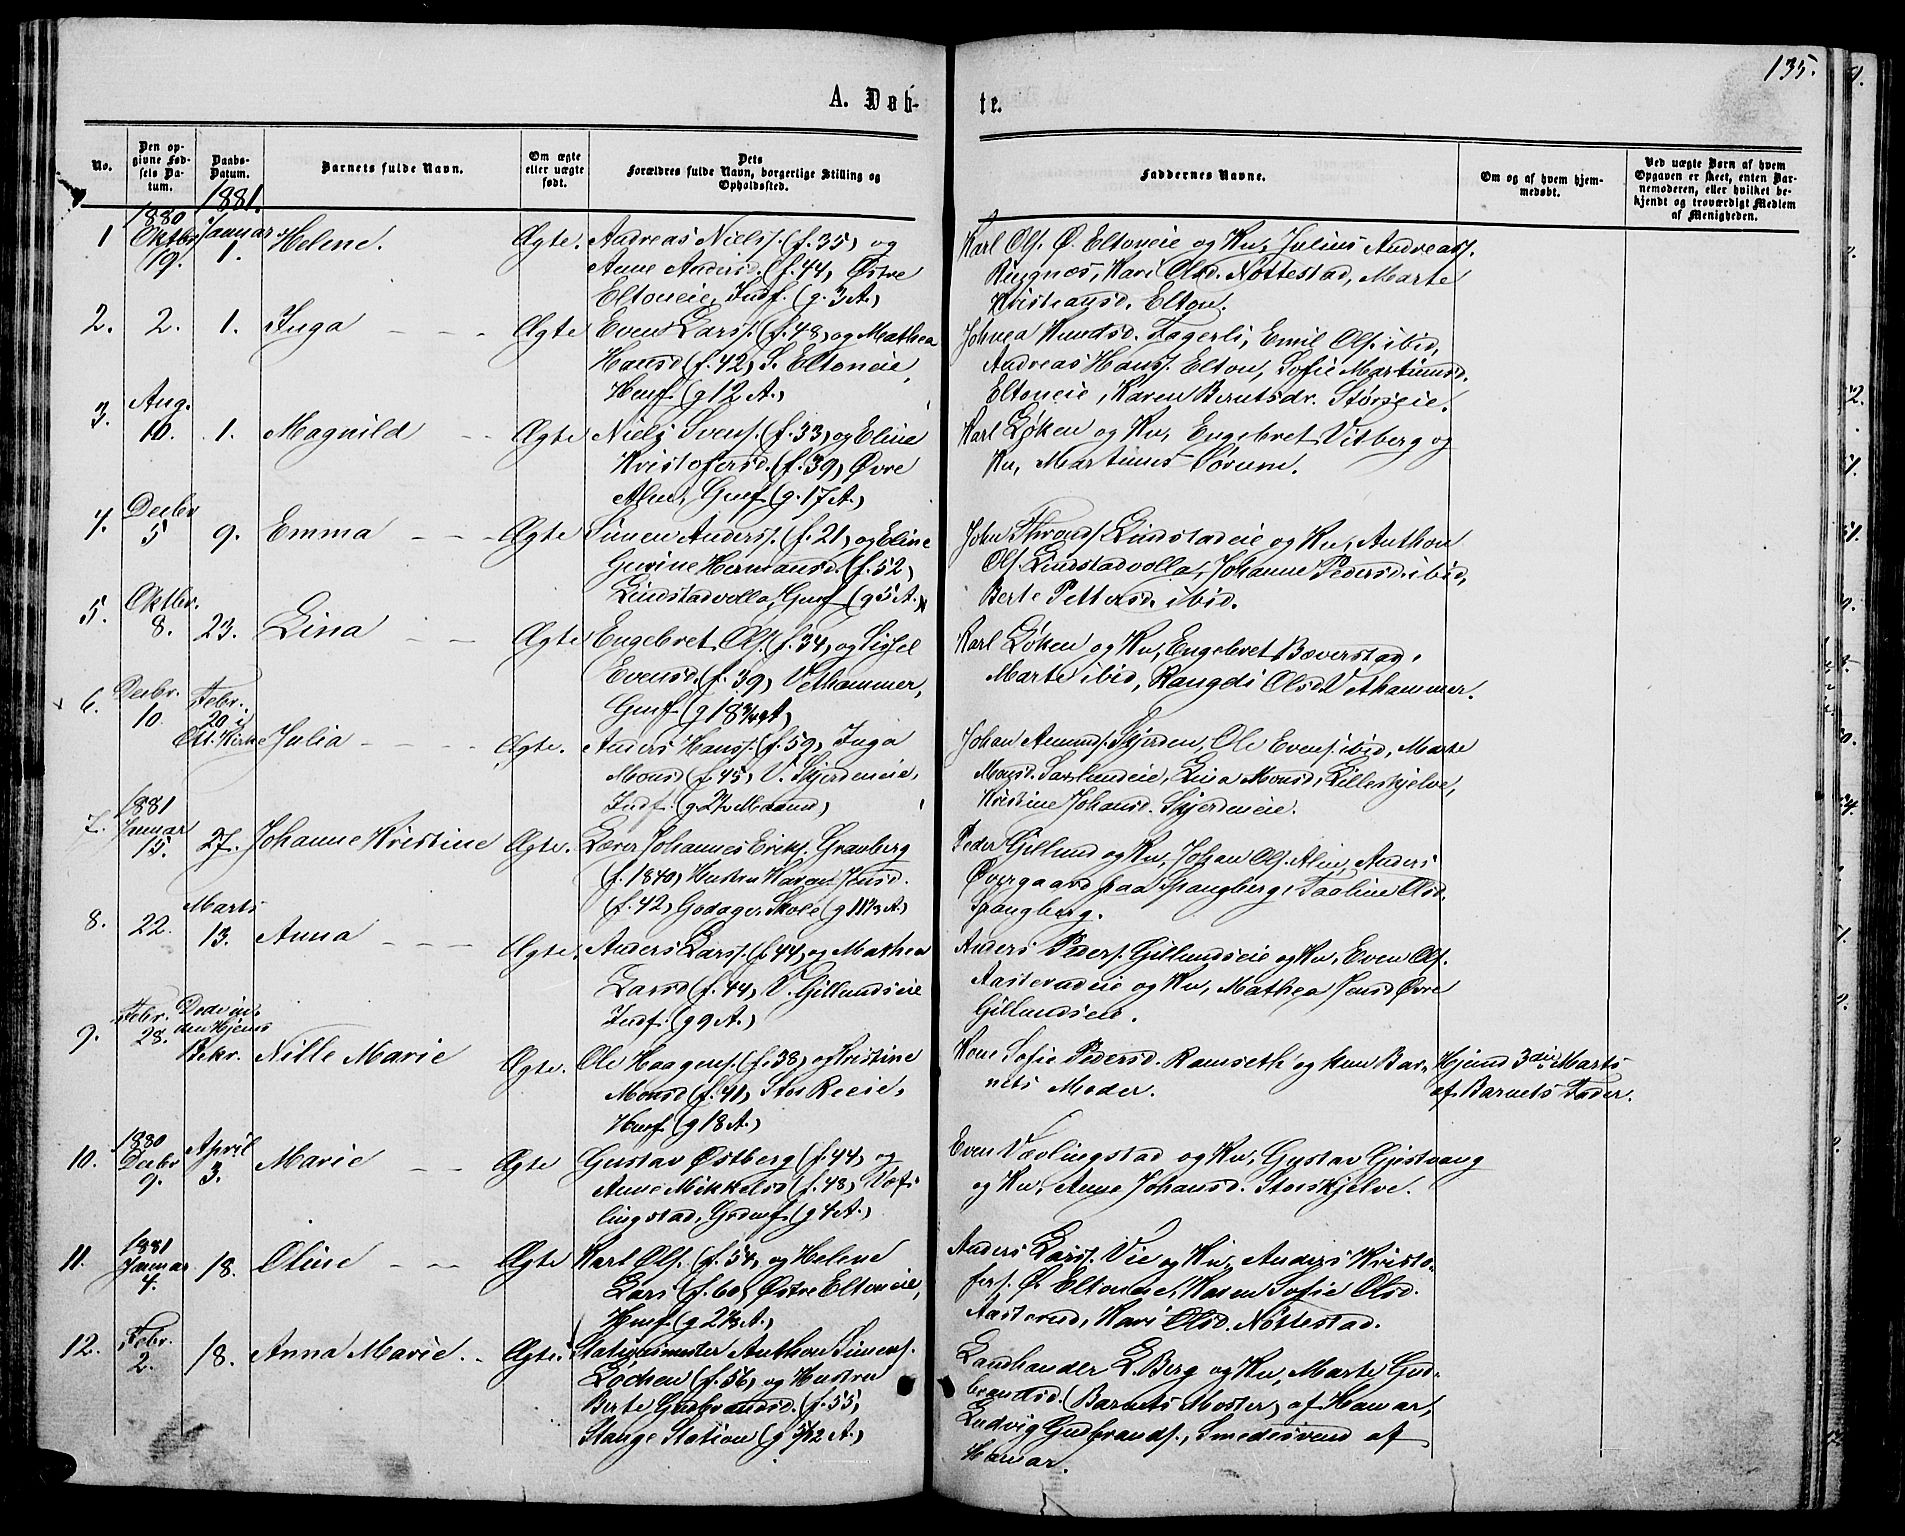 135.
A. Døb-
te.
No.
Den op-
givne Fød-
sels Da-
tum.
Daabs-
Datum.
Barnets fulde Navn.
Om ægte
eller uægte
født.
Dets
Forældres fulde Navn, borgerlige Stilling og
Opholdssted.
Faddernes Navne.
Om og af hvem hjem-
medøbt.
Ved uægte Børn af hvem
Opgaven er skeet, enten Bar-
nemoderen, eller hvilket be-
kjendt og troværdigt Medlem
af Menigheden.
1880
1881.
1
Oktbr
19.
Januar
1.
Helene.
Ægte.
Andreas Nielss. (f. 35) og
Anne Andersd. (f. 44) Østre
Eltoneie, Indf. (g. 3 A.)
Karl Ols. Ø. Eltoneie og Ku, Julius Andreass.
Ringnes, Kari Olsd. Nøttestad, Marte
Kristiansd. Elton.
2.
2.
1.
Inga
Ægte
Even Larss. (f. 48) og Mathea
Hansd (f. 42) S. Eltoneie,
Husf. (g 12 A.)
Johnea Knudsd. Fagerli, Emil Ols. ibid,
Andreas Hanss. Elton, Sofie Martinusd.
Eltoneie, Karen Berntsdr. Størseie.
3.
Aug.
10.
1.
Magnild
Ægte
Niels Svens. (f. 33) og Eline
Kristofersd. (f. 39) Øvre
Alm, Gmf. (g. 17 A.)
Karl Løken og Ku, Engebret Vitberg og
Ku, Martinus Sørum.
4.
Decbr
5
9.
Emma
Ægte
Simen Anderss. (f. 21) og Eline
Gurine Hermansd. (f. 52)
Lindstadvolla, Gmf. (g 5 A.)
John Thronds. Lindstadeie og Ku, Anthon
Ols. Lindstadvolla, Johanne Pedersd. ibid,
Berte Pettersd. ibid.
5.
Oktbr.
8.
23.
Lina
Ægte
Engebret Ols. (f. 34) og Sissel
Evensd. (f. 39) Vethammer,
Gmf. (g 18 3/4 A)
Karl Løken og Ku, Engebret Bæverstad,
Marte ibid, Rangdi Olsd. Vethammer.
6.
Decbr.
10.
Febr.
20 i
Ott. Kirke
Julia
Ægte.
Anders Hanss. (f. 59) Inga
Monsd (f. 45) V. Skjerdeneie,
Indf. (g 2 1/2 Maaned)
Johan Amunds. Skjerden, Ole Evens. ibid, Marte
Monsd. Saxlundeie, Lina Monsd. Lilleskjelve,
Kristine Johansd. Skjerdeneie.
7.
1881
Januar
15.
27.
Johanne Kristine
Ægte.
Lærer Johannes Eriks. Gravberg
(f. 1840) Hustru Karen Jensd.
(f. 42) Godager Skole (g 11 1/3 A.)
Peder Gillund og Ku, Johan Ols. Alm, Anders
Øvergaard paa Spangberg, Paoline Olsd.
Spangberg.
8.
22.
Marts
13.
Anna
Ægte.
Anders Larss. (f. 44) og Mathea
Larsd (f. 44) V. Gillundseie
Indf. (g 9 A.)
Anders Peders. Gillundseie og Ku, Even Ols.
Aasterudeie og Ku, Mathea Jensd. Øvre
Gillundseie.
9.
Febr.
28.
Døde in-
den Hjems
Bekr.
Nille Marie
Ægte.
Ole Haagens. (f. 38) og Kristine
Monsd (f. 41) Stor Reeie,
Husf. (g 18 A.)
Kone Sofie Pedersd. Ramseth og kun Bar-
nets Moder.
Hjemd 3die Marts
af Barnets Fader.
10.
1880
Decbr
9.
April
3.
Marie
Ægte
Gustav Østberg (f. 44) og
Anne Mikkelsd (f. 48) Væv-
lingstad, Grdmf. (g 4 A.)
Even Vævlingstad og Ku, Gustav Gjestvang
og Ku, Anne Johansd. Storskjelve.
11.
1881
Januar
4.
18.
Oline
Ægte
Karl Ols. (f. 54) og Helene
Lars (f. 60) Østre Eltoneie,
Husf. (g 2 1/3 A.)
Anders Larss. Vie og Ku, Anders Kristo-
fers. Ø. Eltoneie, Karen Sofie Olsd.
Aasterud, Kari Olsd. Nøttestad.
12.
Febr.
2.
18.
Anna Marie
Ægte
Stationsmester Anthon Simens.
Løchen (f. 56) og Hustru
Berte Gudbrandsd. (f. 55)
Stange Station (g 5/12 A.)
Landhandler L. Berg og Ku, Marte Gud-
brandsd. (Barnets Moster) af Hamar,
Ludvig Gudbrands., Smedesvend af
Hamar.